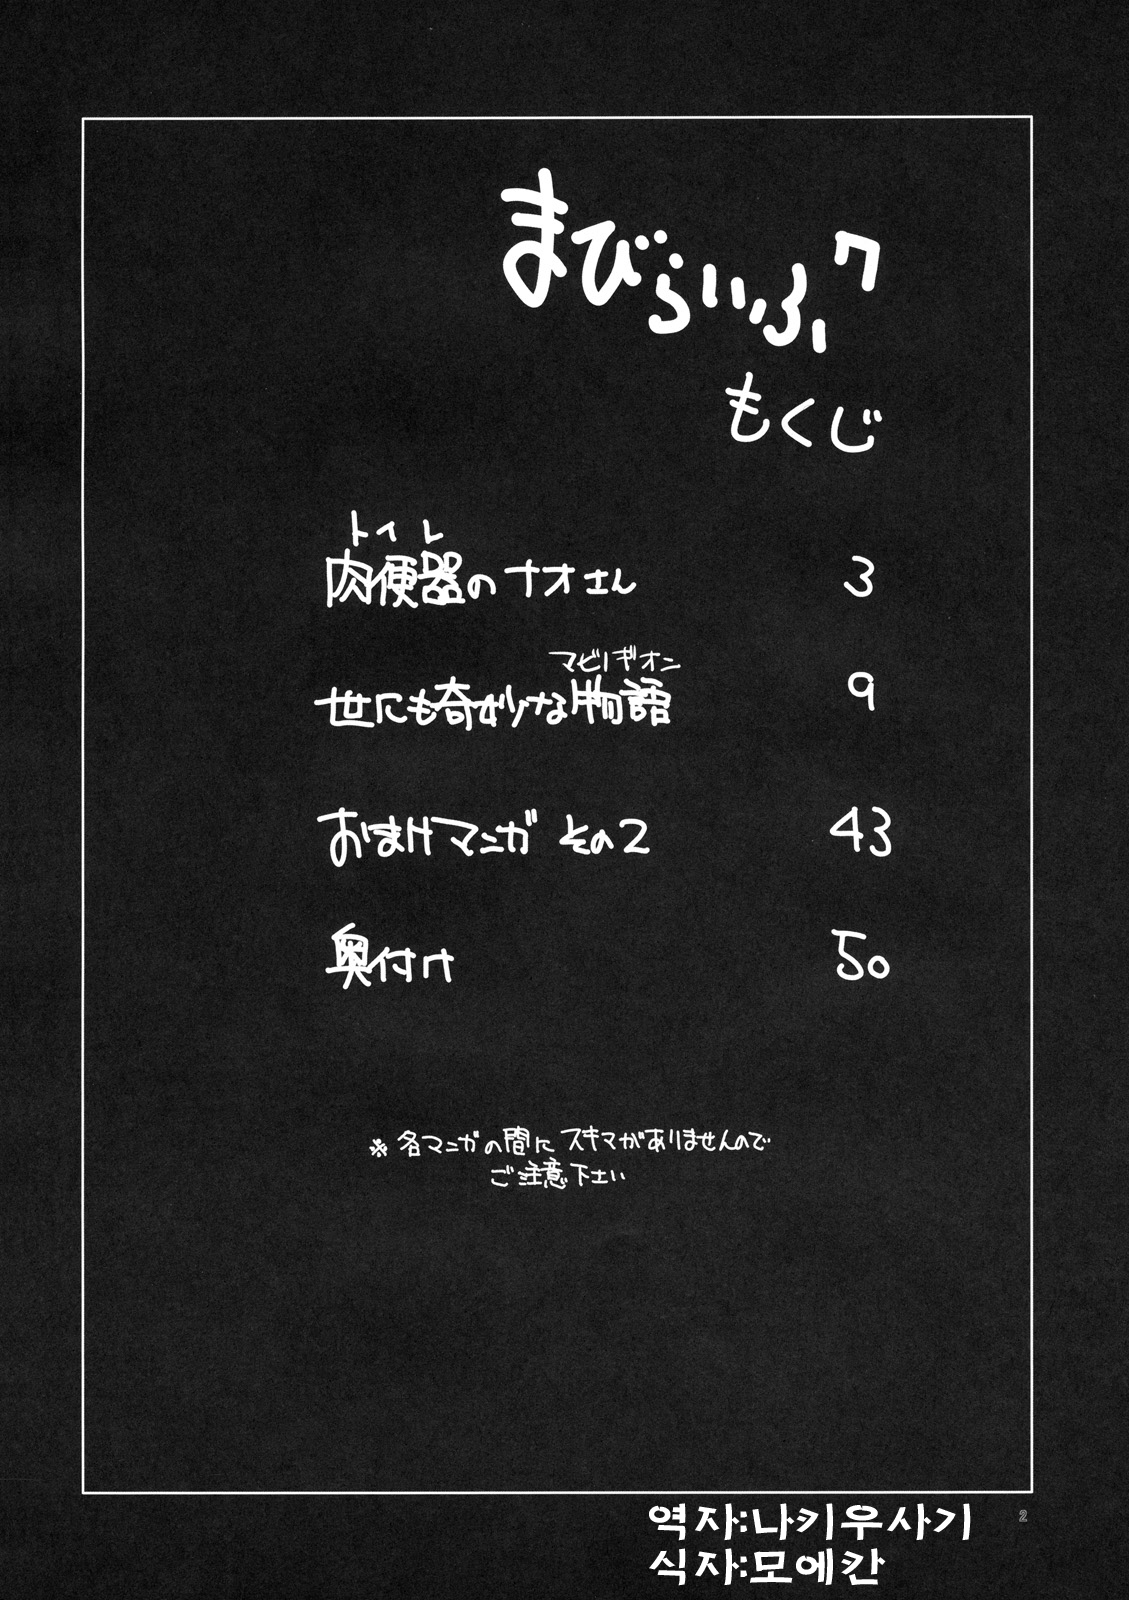 まびらいふ7
もくじ
トイレ
肉便器のナオさん 3
マビノギオン
世にも奇妙な物語 9
おまけマンガ その2 43
奥付け 50
※各マンガの間にスキマがありませんので
ご注意下さい
역자:나키우사기
2
식자:모에칸